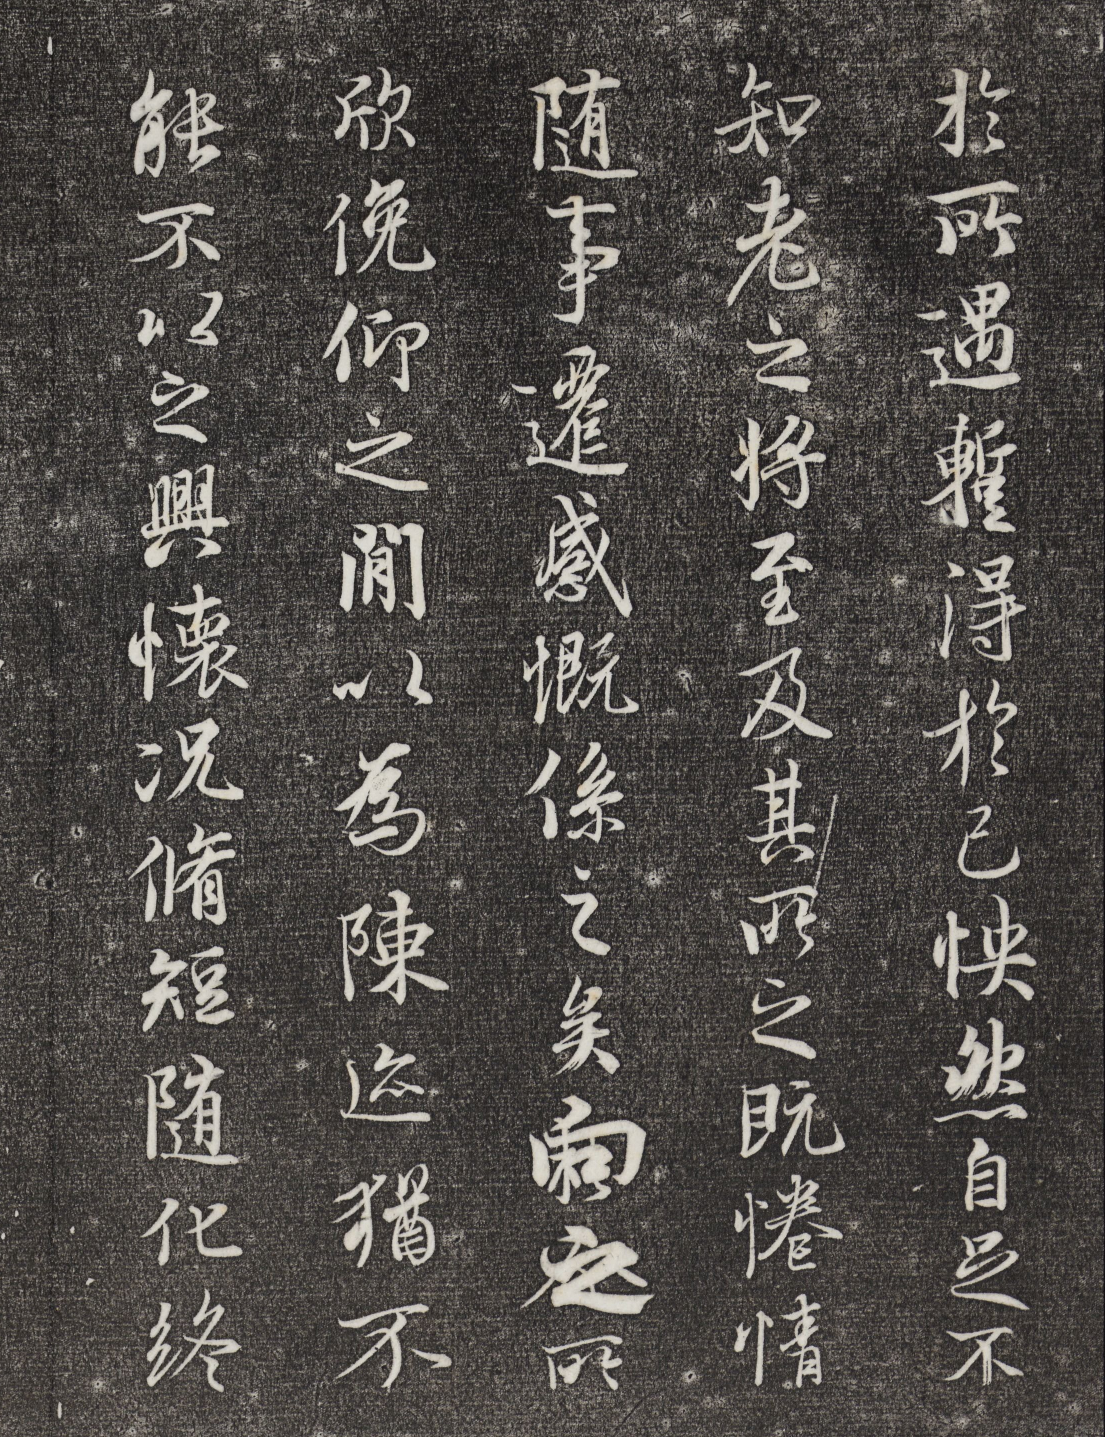 於所遇蹔得於己怏然自足不
知老之將至及其所之既惓情
随事遷感慨係之矣向之所
欣俛仰之閒以為陳迹猶不
能不以之興懷况脩短随化終